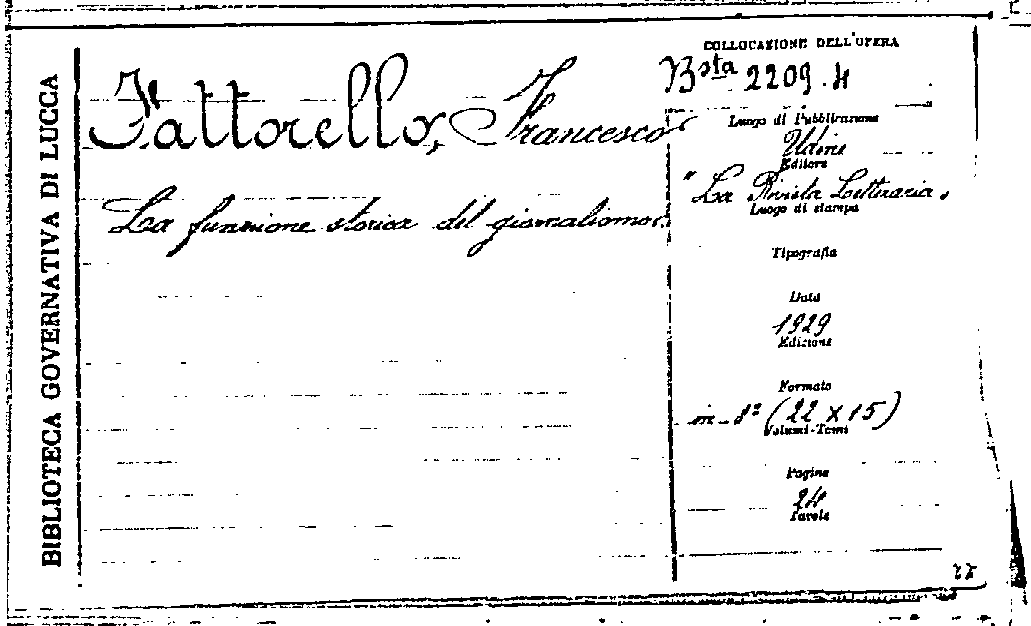 BIBLIOTECA GOVERNATIVA DI LUCCA
Fattorello, Francesco
La funzione storica del giornalismo.
COLLOCAZIONE DELL'OPERA
Bsta 2209.4
Luogo di Pubblicazione
Udine
Editore
"La Rivista Letteraria"
Luogo di stampa
Tipografia
Data
1929
Edizione
Formato
in-8° (22 x 15)
Volumi-Tomi
Pagine
24
Tavole